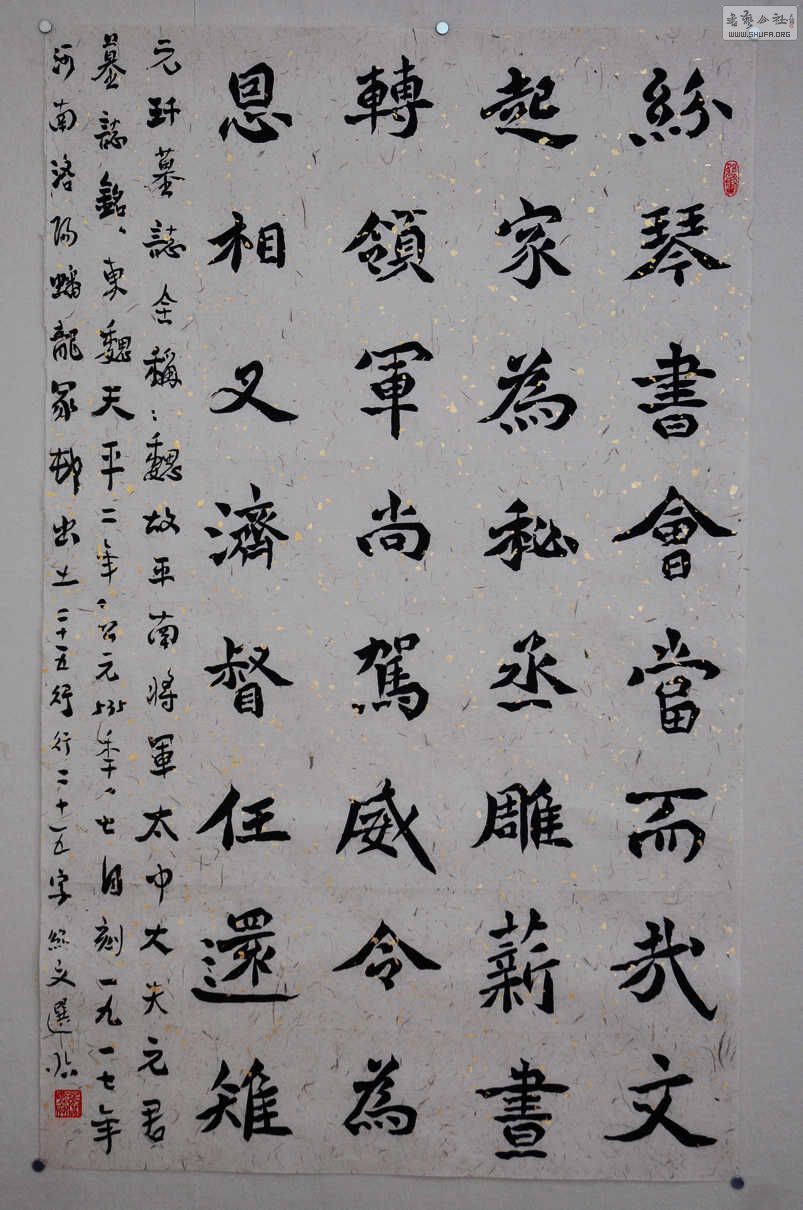 紛琴書會當而哉文
起家為秘丞雕薪晝
轉領軍尚駕威令為
恩相又濟督任還雉
元玕墓誌全稱：魏故平南將軍太中大夫元君
墓誌銘、東魏天平二年、公元535年、七月刻一九一七年
河南洛陽蟠龍冢村出土二十五行行二十五字 文選臨
書藝公社
WWW.SHUFA.ORG